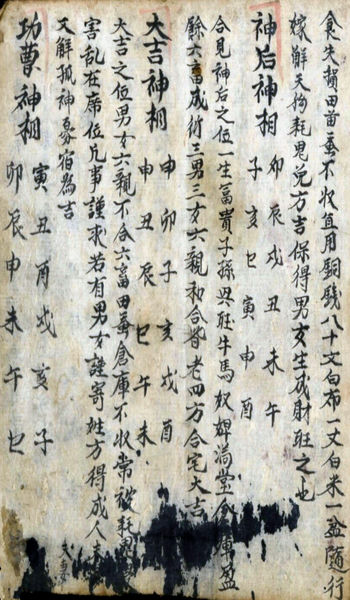 食失損田苗蚕不收宜用銅錢八十文白布一丈白米一盆隨行
嫁解天狗耗鬼兑方吉保得男女生成財旺之也
神后神相
卯辰戌丑未午
子亥巳寅申酉
合見神后之位一生富貴子孫興旺牛馬奴婢滿堂倉庫盈
餘六畜成行三男三女六親和合皆老四方合宅大吉
大吉神相
申卯子亥戌酉
申丑辰巳午未
大吉之位男女六親不合六畜田蚕倉庫不收常被耗
害乱在席位凡事謹求若有男女謹寄姓方得成人
又解孤神寡宿為吉
功曹神相
寅丑酉戌亥子
卯辰申未午巳